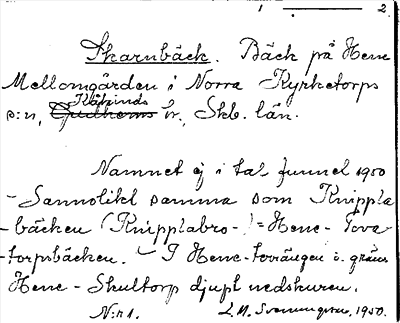 1 — 2.
Skarnbäck. Bäck på Hene
Mellomgården i Norra Kyrketorps
Kåkinds
s:n, Gudhems hr., Skb. län.
Namnet ej i tal funnet 1950
- Sannolikt samma som Knippla
- bäcken (Knipplabro-) = Hene- Tova
- torpsbäcken. - I Hene-terrängen i. gräns
Hene - Skultorp djupt nedskuren.
N:r 1. L. M. Svenungsson, 1950.